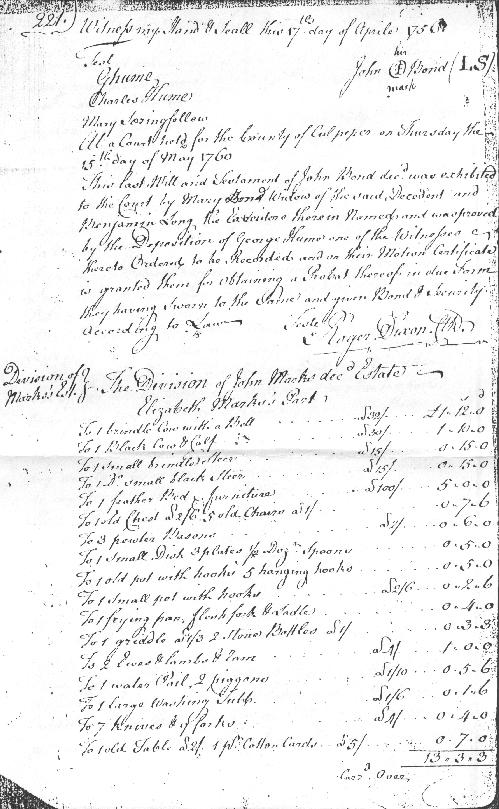 221.
Witness my Hand & Seall this 17th day of Aprile 1756
Test
his
GHume
John Bond (LS)
mark
Charles Hume
Mary Springfollow
At a Court held for the County of Culpeper on Thursday the
15th day of May 1760
This last Will and Testament of John Bond decd was exhibited
to the Court by Mary Bond Widow of the said Decedent and
Benjamin Long the Executors therein Named and was proved
by the Deposition of George Hume one of the Witnesses
thereto Ordered to be Recorded and on their Motion Certificate
is granted them for obtaining a Probat thereof in due Form
they having Sworn to the Same and given Bond & Security
According to Law
Teste
Roger Dixon Clk.
Division of
Marks's Est.
The Division of John Marks decd Estate
Elizabeth Marks's Part
To 1 brindle Cow with a Bell £32/. £1-12-0
To 1 Black Cow & Calf £30/. 1-10-0
To 1 Small brindle Steer £15/ 0-15-0
To 1 Do small black Steer £15/. 0-15-0
To 1 feather Bed & furniture £100/. 5-0-0
To 1 old Chest £2/6 5 old Chairs £1/ 0-7-6
To 3 pewter Basons 0-6-0
To 1 Small Dish 3 plates ½ Dozn Spoons 0-5-0
To 1 old pot with hooks 5 hanging hooks 0-5-0
To 1 Small pot with hooks £2/6 0-2-6
To 1 frying pan, flesh fork & Ladle 0-4-0
To 1 griddle £1/3 2 Stone Bottles £1/ 0-3-3
To 2 Ewes & lambs & Ram £4/ 1-0-0
To 1 water Pail, 2 piggons £1/10 0-5-6
To 1 large Washing Tubb £1/6 0-1-6
To 7 Knives & forks £4/ 0-4-0
To 1 old Table £2/. 1 pr Cotton Cards £5/ 0-7-0
13-3-3
Carrd Over